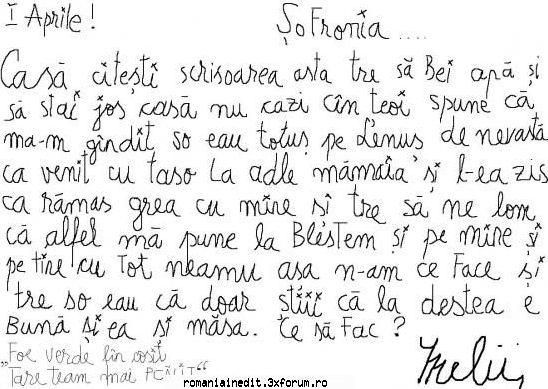 I Aprile! Șofronia ....
Casă citești scrisoarea asta tre să Bei apă și
să stai jos casă nu cazi cîn teoi spune că
ma-m gîndit so eau totuș pe Lenus de nevastă
ca venit cu taso la adle mămaia și l-ea zis
ca rămas grea cu mine si tre să ne lom
că alfel mă pune la Blestem și pe mine și
pe tine cu tot neamu asa n-am ce Face și
tre so eau că doar știi că la destea e
Bună și ea și măsa. Ce să Fac?
„Foe verde fin cosit
Tare team mai
romaniainedit.3xforum.ro